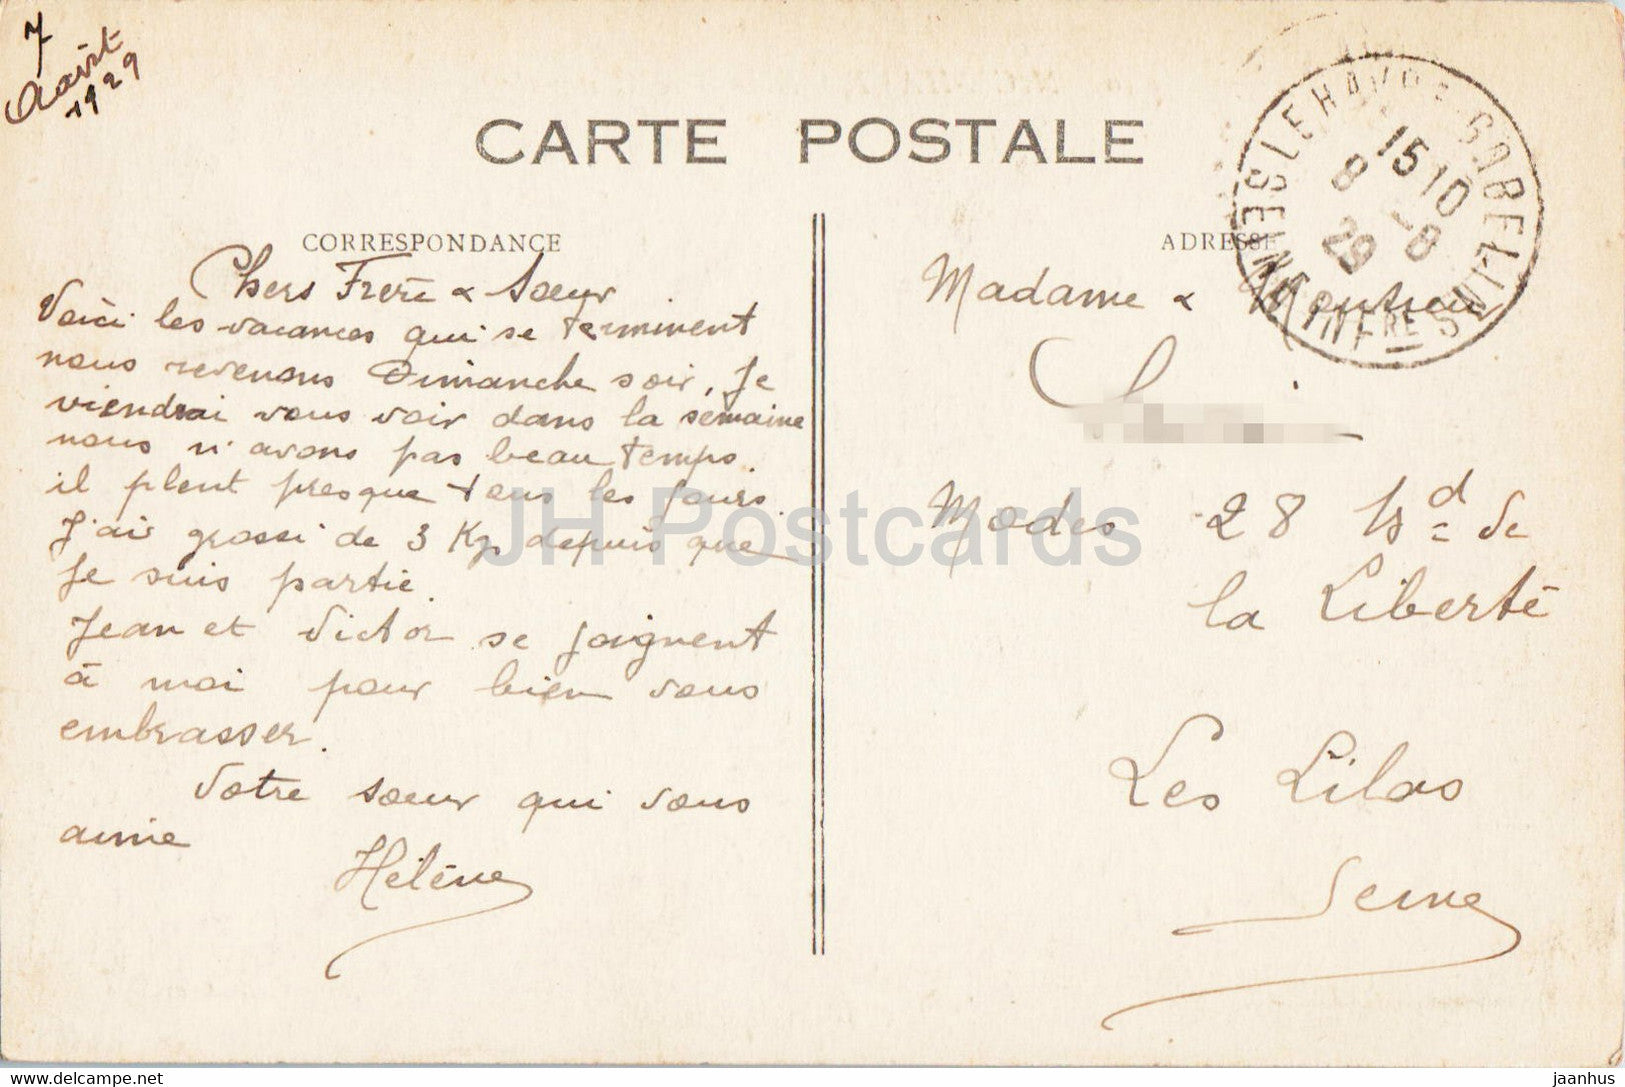 7
Août
1929
CARTE POSTALE
CORRESPONDANCE
Chers Frère & Sœur
Voici les vacances qui se terminent
nous revenons Dimanche soir, je
viendrai vous voir dans la semaine
nous n'avons pas beau temps.
il pleut presque tous les jours.
J'ai grossi de 3 Kg depuis que
je suis partie.
Jean et Victor se joignent
à moi pour bien vous
embrasser.
Votre sœur qui vous
aime
Hélène
ADRESSE
LE HAVRE-GOBELINS
SEINE INFRE
15 10
8 -8
29
Madame & Monsieur
Modes 28 Bd de
la Liberté
Les Lilas
Seine
JH Postcards
delcampe.net
jaanhus